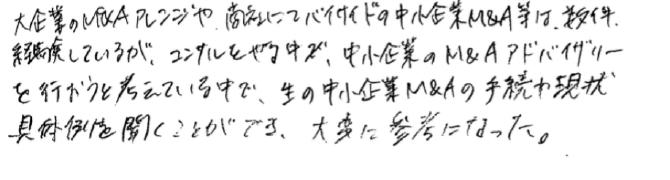 大企業のM&Aアレンジや、商社にてバイサイドの中小企業M&A等は、数件
経験しているが、コンサルをやる中で、中小企業のM&Aアドバイザリー
を行おうと考えている中で、生の中小企業M&Aの手続や現状
具体例を聞くことができ、大変に参考になった。